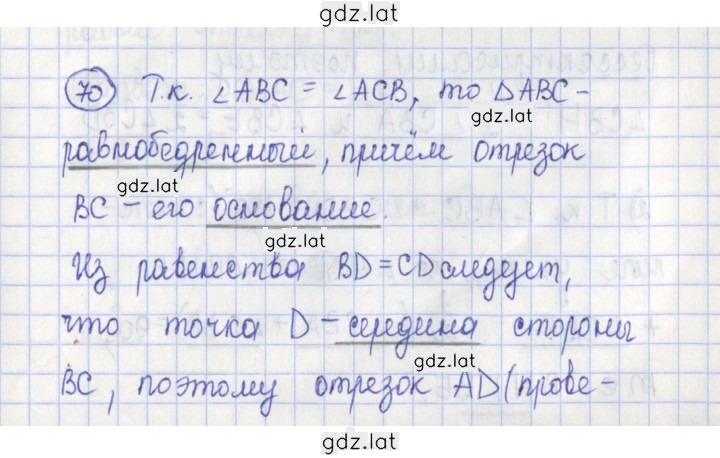 gdz.lat
70 Т.к. ∠ABC = ∠ACB, то △ABC -
gdz.lat
равнобедренный, причём отрезок
gdz.lat
BC - его основание.
gdz.lat
Из равенства BD = CD следует,
что точка D - середина стороны
gdz.lat
BC, поэтому отрезок AD (прове-
gdz.lat